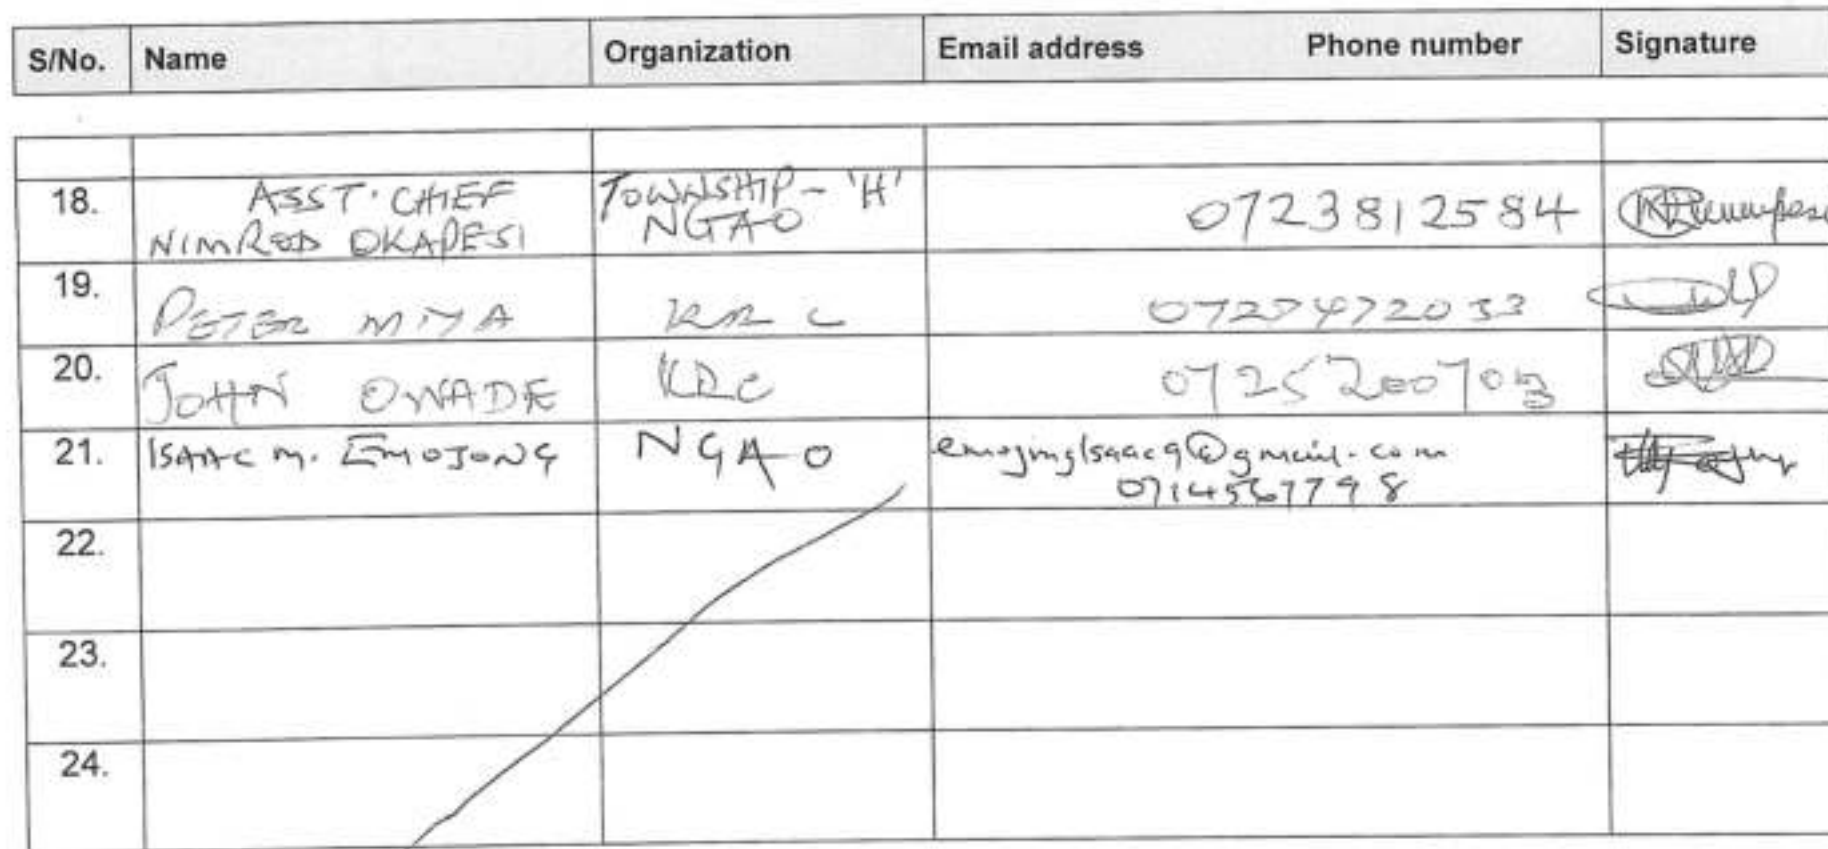 S/No. Name Organization Email address Phone number Signature
18. ASST. CHIEF TOWNSHIP - 'H'
NIMROD OKAPESI NGAO 0723812584
19. PETER MIYA KRC 0727472033
20. JOHN OWADE KRC 0725200703
21. ISAAC M. EMOJONG NGAO emojongIsaac9@gmail.com
0714567798
22.
23.
24.